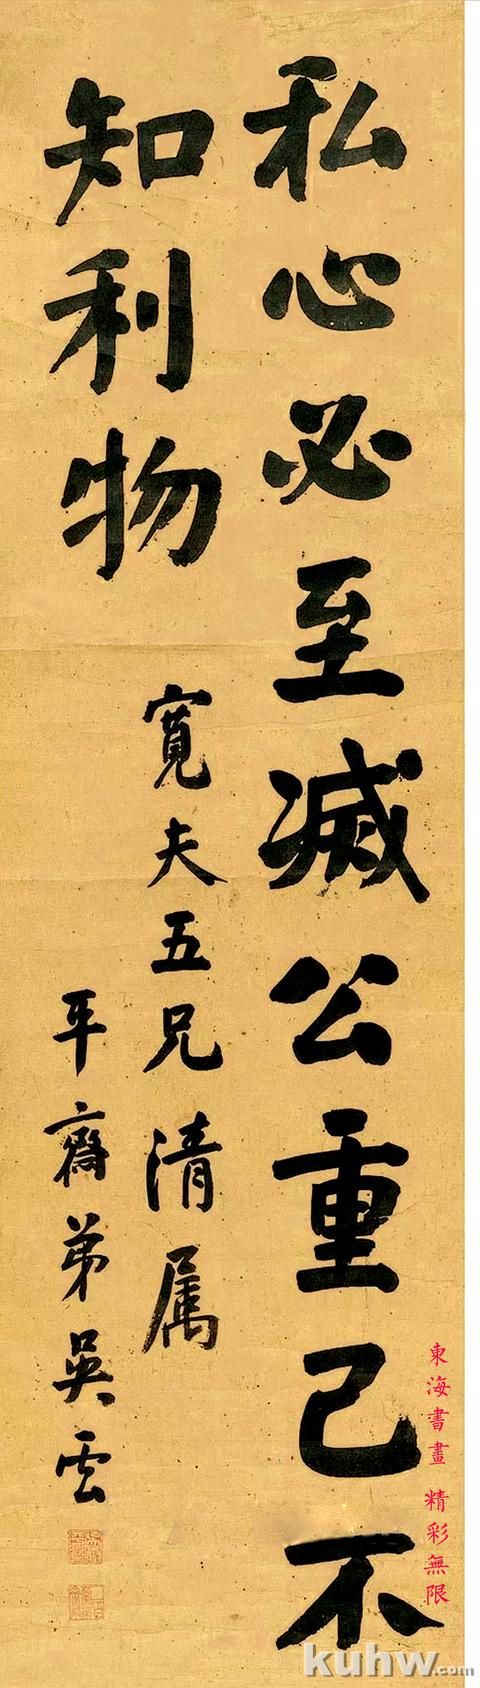 私心必至滅公重己不
知利物
寬夫五兄清属
平齋弟吳雲
東海書畫 精彩無限
kuhw.com